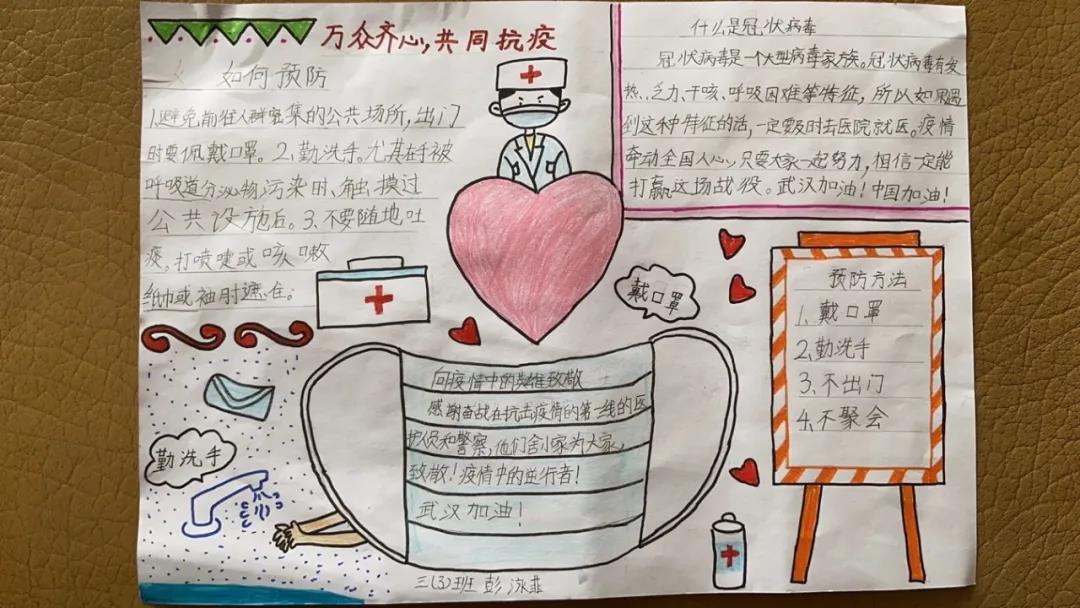 万众齐心,共同抗疫
如何预防
1.避免前往人群密集的公共场所,出门
时要佩戴口罩。2.勤洗手。尤其在手被
呼吸道分泌物污染时、触摸过
公共设施后。3.不要随地吐
痰,打喷嚏或咳嗽
纸巾或袖肘遮住。
什么是冠状病毒
冠状病毒是一个大型病毒家族。冠状病毒有发
热、乏力、干咳、呼吸困难等特征,所以如果遇
到这种特征的活,一定要及时去医院就医。疫情
牵动全国人心,只要大家一起努力,相信一定能
打赢这场战役。武汉加油!中国加油!
戴口罩
预防方法
1.戴口罩
2.勤洗手
3.不出门
4.不聚会
向疫情中的英雄致敬
感谢奋战在抗击疫情的第一线的医
护人员和警察,他们舍小家为大家,
致敬!疫情中的逆行者!
武汉加油!
勤洗手
三(3)班 彭